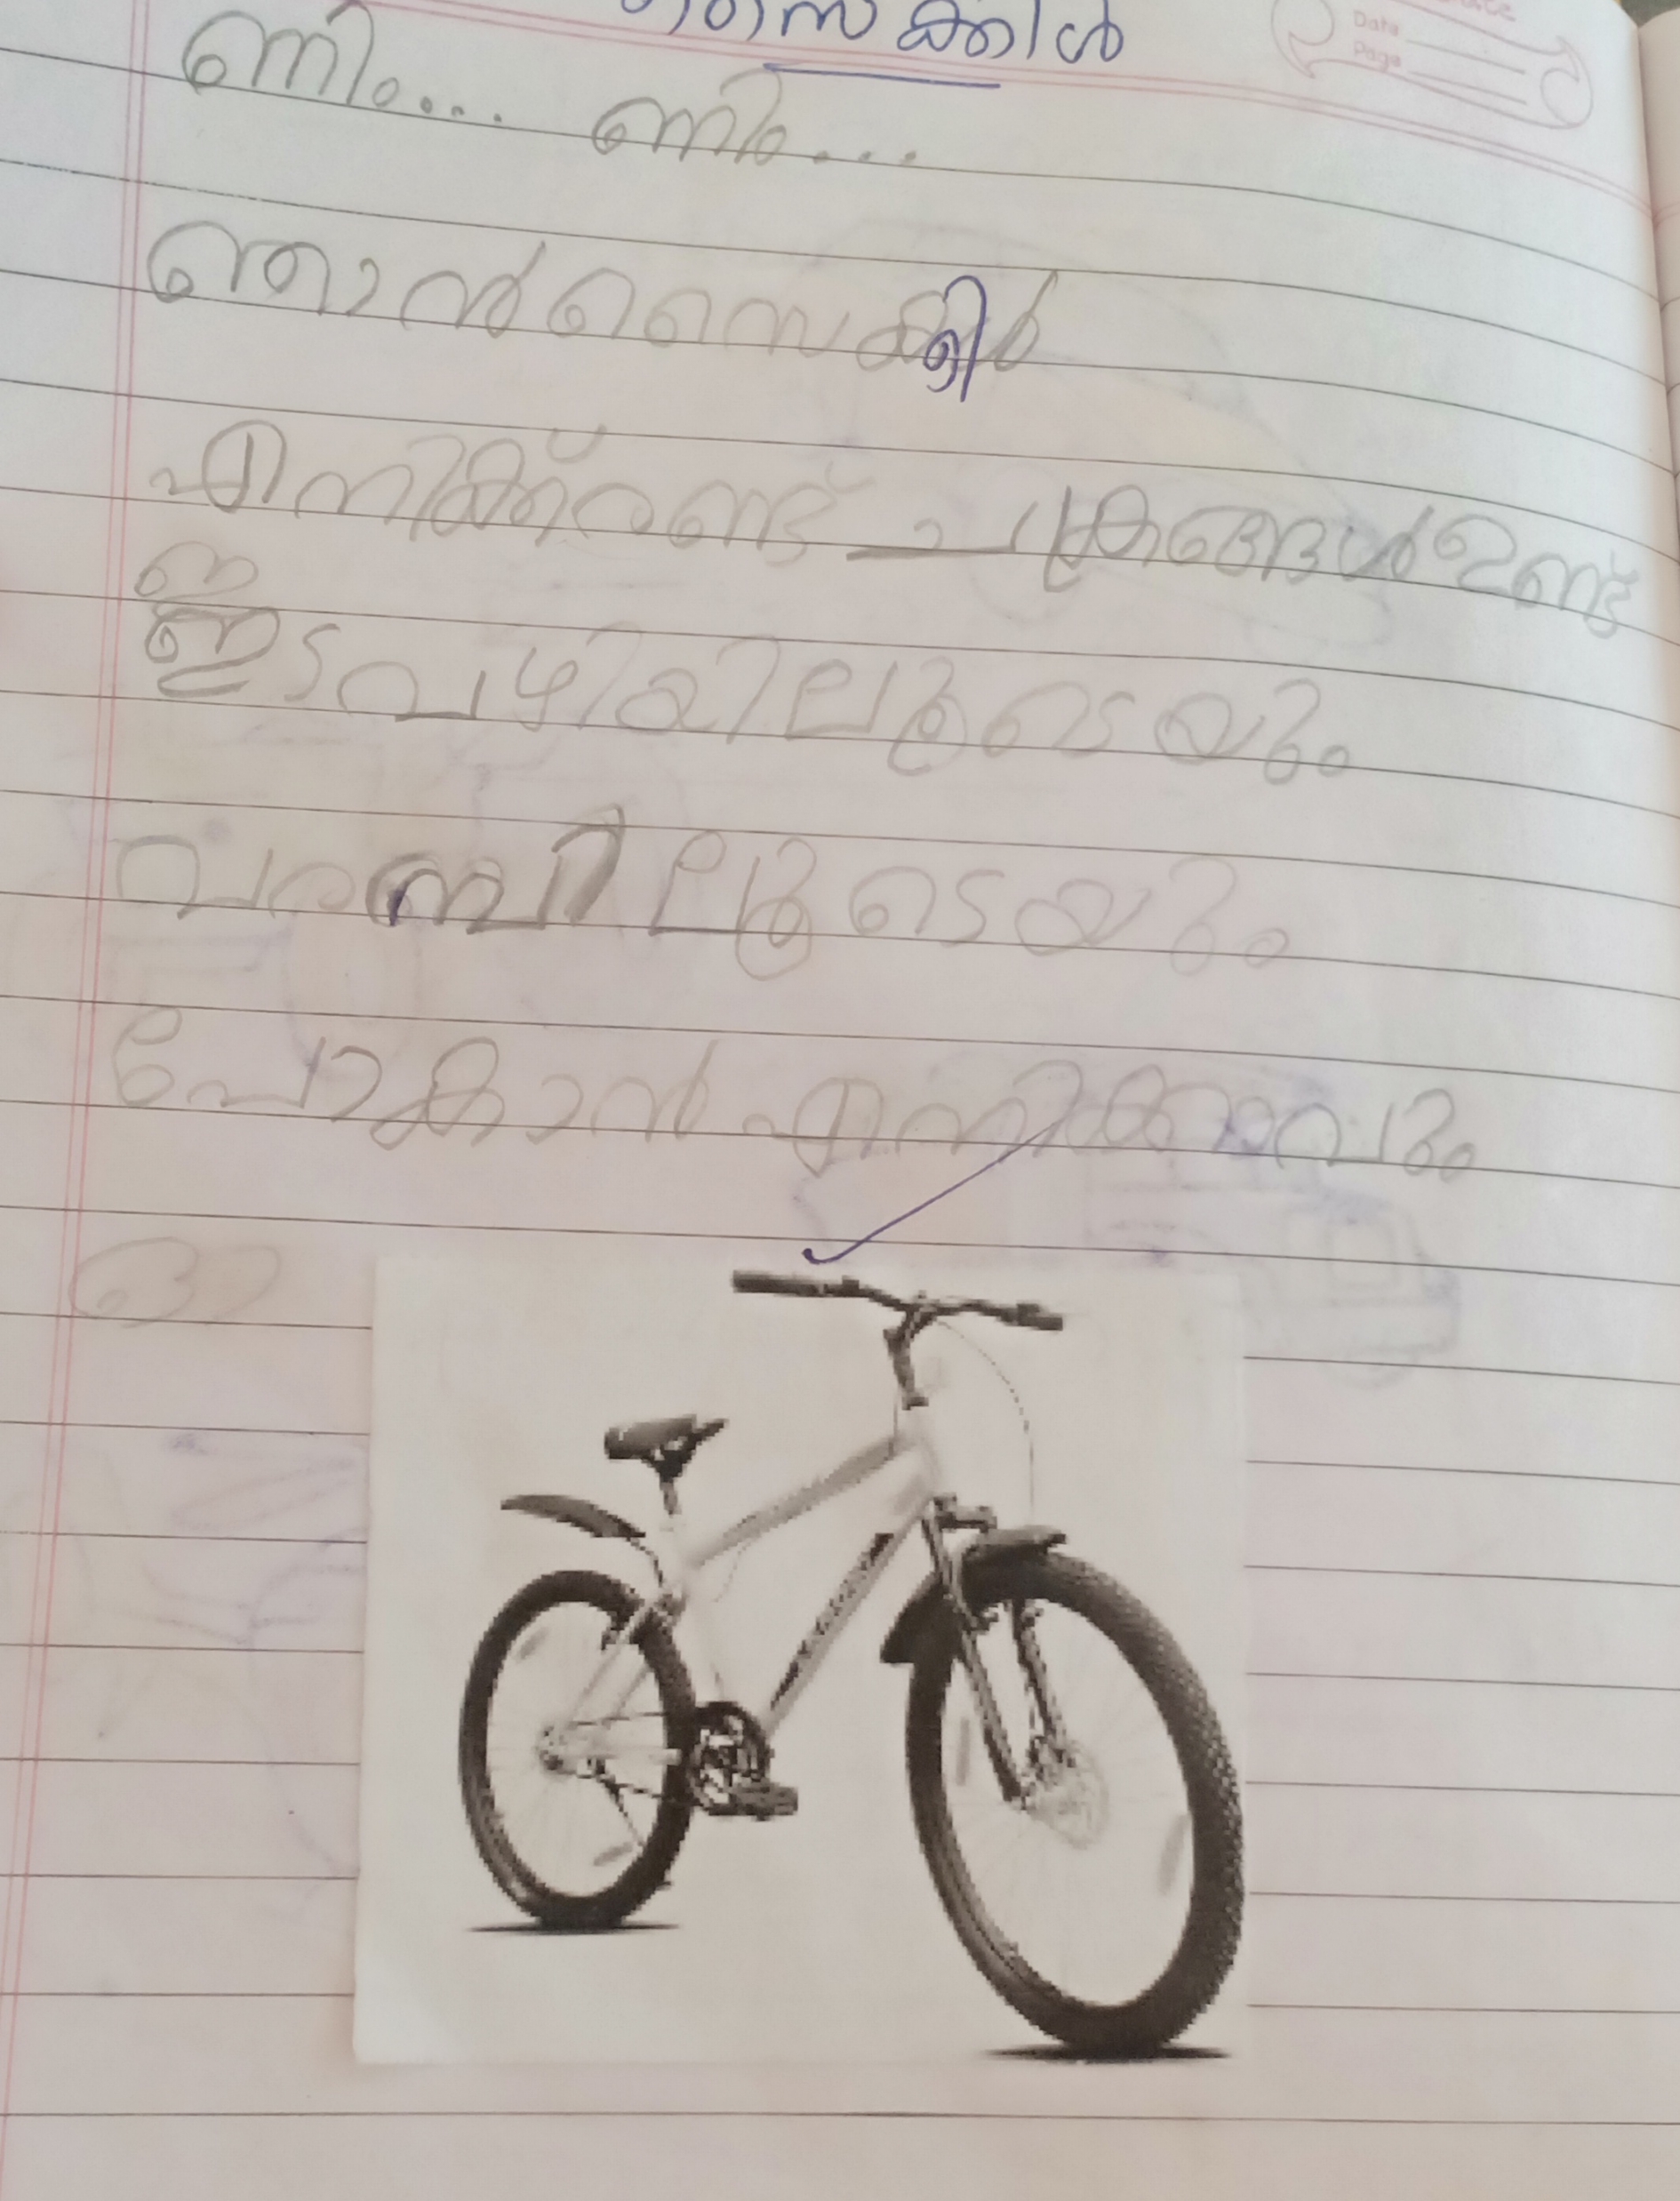 സൈക്കിൾ
Date
Page
ണിം... ണിം...
ഞാൻ സൈക്കിൾ
എനിക്ക് രണ്ട് ചക്രങ്ങൾ ഉണ്ട്
ഇടവഴിയിലൂടെയും
വരമ്പിലൂടെയും
പോകാൻ എനിക്കാവും